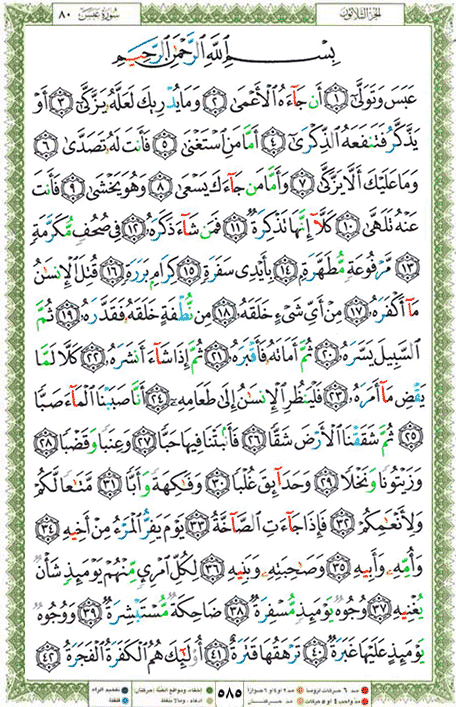 سُورَةُ عَبَسَ ٨٠
الجزء الثلاثون
بِسْمِ ٱللَّهِ ٱلرَّحْمَٰنِ ٱلرَّحِيمِ
عَبَسَ وَتَوَلَّىٰٓ ١ أَن جَآءَهُ ٱلْأَعْمَىٰ ٢ وَمَا يُدْرِيكَ لَعَلَّهُۥ يَزَّكَّىٰٓ ٣ أَوْ
يَذَّكَّرُ فَتَنفَعَهُ ٱلذِّكْرَىٰٓ ٤ أَمَّا مَنِ ٱسْتَغْنَىٰ ٥ فَأَنتَ لَهُۥ تَصَدَّىٰ ٦
وَمَا عَلَيْكَ أَلَّا يَزَّكَّىٰ ٧ وَأَمَّا مَن جَآءَكَ يَسْعَىٰ ٨ وَهُوَ يَخْشَىٰ ٩ فَأَنتَ
عَنْهُ تَلَهَّىٰ ١٠ كَلَّآ إِنَّهَا تَذْكِرَةٌ ١١ فَمَن شَآءَ ذَكَرَهُۥ ١٢ فِى صُحُفٍ مُّكَرَّمَةٍ
١٣ مَّرْفُوعَةٍ مُّطَهَّرَةٍۭ ١٤ بِأَيْدِى سَفَرَةٍ ١٥ كِرَامٍۭ بَرَرَةٍ ١٦ قُتِلَ ٱلْإِنسَٰنُ
مَآ أَكْفَرَهُۥ ١٧ مِنْ أَىِّ شَىْءٍ خَلَقَهُۥ ١٨ مِن نُّطْفَةٍ خَلَقَهُۥ فَقَدَّرَهُۥ ١٩ ثُمَّ
ٱلسَّبِيلَ يَسَّرَهُۥ ٢٠ ثُمَّ أَمَاتَهُۥ فَأَقْبَرَهُۥ ٢١ ثُمَّ إِذَا شَآءَ أَنشَرَهُۥ ٢٢ كَلَّا لَمَّا
يَقْضِ مَآ أَمَرَهُۥ ٢٣ فَلْيَنظُرِ ٱلْإِنسَٰنُ إِلَىٰ طَعَامِهِۦٓ ٢٤ أَنَّا صَبَبْنَا ٱلْمَآءَ صَبًّا
٢٥ ثُمَّ شَقَقْنَا ٱلْأَرْضَ شَقًّا ٢٦ فَأَنۢبَتْنَا فِيهَا حَبًّا ٢٧ وَعِنَبًا وَقَضْبًا ٢٨
وَزَيْتُونًا وَنَخْلًا ٢٩ وَحَدَآئِقَ غُلْبًا ٣٠ وَفَٰكِهَةً وَأَبًّا ٣١ مَّتَٰعًا لَّكُمْ
وَلِأَنْعَٰمِكُمْ ٣٢ فَإِذَا جَآءَتِ ٱلصَّآخَّةُ ٣٣ يَوْمَ يَفِرُّ ٱلْمَرْءُ مِنْ أَخِيهِ ٣٤
وَأُمِّهِۦ وَأَبِيهِ ٣٥ وَصَٰحِبَتِهِۦ وَبَنِيهِ ٣٦ لِكُلِّ ٱمْرِئٍ مِّنْهُمْ يَوْمَئِذٍ شَأْنٌ
يُغْنِيهِ ٣٧ وُجُوهٌ يَوْمَئِذٍ مُّسْفِرَةٌ ٣٨ ضَاحِكَةٌ مُّسْتَبْشِرَةٌ ٣٩ وَوُجُوهٌ
يَوْمَئِذٍ عَلَيْهَا غَبَرَةٌ ٤٠ تَرْهَقُهَا قَتَرَةٌ ٤١ أُو۟لَٰٓئِكَ هُمُ ٱلْكَفَرَةُ ٱلْفَجَرَةُ ٤٢
٥٨٥